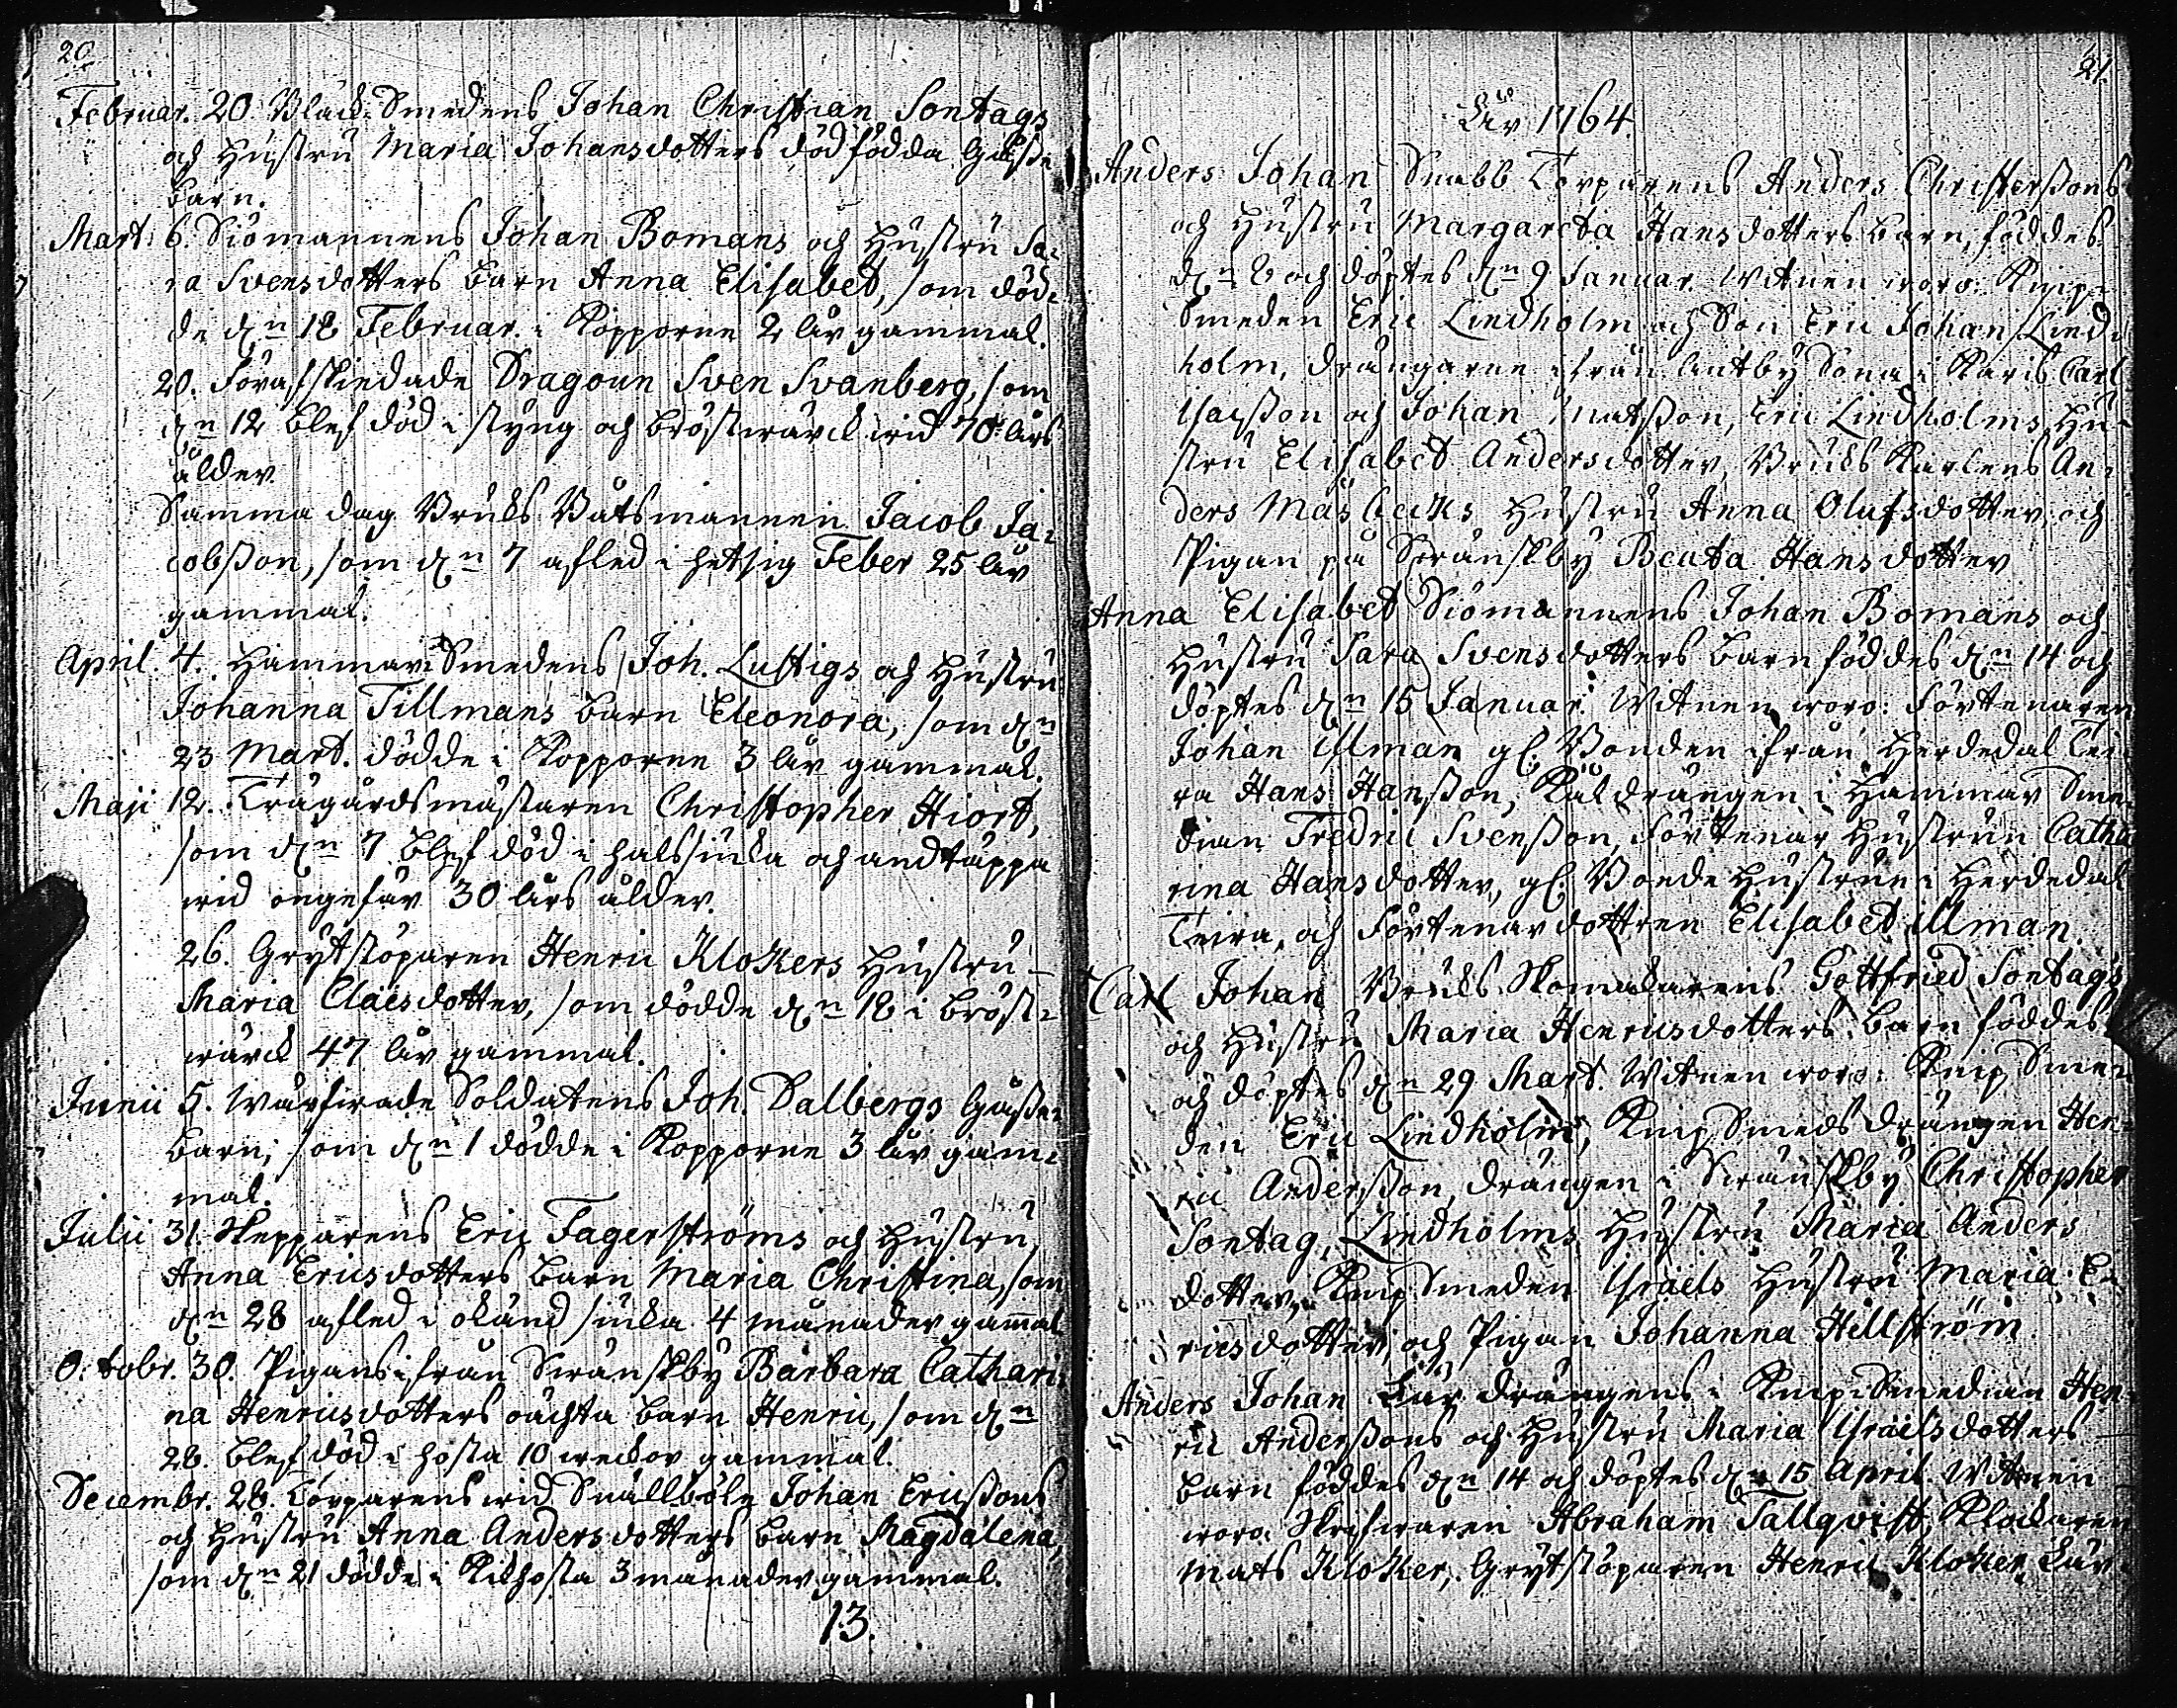 20.
Februar. 20. Black-Smedens Johan Christian Sontags
och Hustru Maria Johansdotters dödfödda Gåsse
barn.
Mart: 6. Siömannens Johan Bomans och Hustru Sa-
ra Svensdotters barn Anna Elisabet, som död-
de dn 18 Februar. i Kopporne 2 år gammal.
20. Förafskiedade Dragoun Sven Svanberg, som
dn 12 blef död i styng och bröstwärck wid 70 års
ålder.
Samma dag Bruks Båtsmannen Jacob Ja-
cobsson, som dn 7 afled i hetsig Feber 25 år
gammal.
April. 4. Hammar Smedens Joh. Lustigs och Hustru
Johanna Tillmans barn Eleonora, som dn
23 Mart. dödde i Kopporne 3 år gammal.
Maji 12. Trägårdsmästaren Christopher Hiort,
som dn 7 blef död i halssiuka och andtäppa
wid ongefär 30 års ålder.
26. Grytstöparen Henric Klokers Hustru
Maria Claesdotter, som dödde dn 18 i bröst-
wärck 47 år gammal.
Junii 5. Wärfwade Soldatens Joh. Dalbergs Gåsse-
barn, som dn 1 dödde i Kopporne 3 år gam-
mal.
Julii 31. Skepparens Eric Fagerströms och Hustru
Anna Ericsdotters barn Maria Christina, som
dn 28 afled i okänd siuka 4 månader gammal
Octobr. 30. Pigans ifrån Swänskby Barbara Cathari-
na Henricsdotters oächta barn Henric, som dn
28. blef död i hosta 10 weckor gammal.
Decembr. 28. Torparens wid Snällböle Johan Ericssons
och Hustru Anna Andersdotters barn Magdalena,
som dn 21 dödde i Kikhosta 3 månader gammal.
13.
21.
År 1764.
Anders Johan Snabb Torparens Anders Christerssons
och Hustru Margareta Hansdotters barn, föddes
dn 8 och döptes dn 9 Januar. Witnen woro: Knip-
Smeden Eric Lindholm och Son Eric Johan Lind-
holm, drängarne ifrån i Karis Carl
Isacsson och Johan Matsson, Eric Lindholms Hu-
stru Elisabet Andersdotter, Bruks Karlens An-
ders Mäsbecks Hustru Anna Olufsdotter och
Pigan på Swänskby Beata Hansdotter
Anna Elisabet Siömannens Johan Bomans och
Hustru Sara Svensdotters barn föddes dn 14 och
döptes dn 15 Januar. Witnen woro: Förtenaren
Johan Ulman gl. Bonden ifrån Herdedal
Hans Hansson, Kåldrängen i Hammar Sme-
dian Fredric Svensson, Förtenar Hustrun Catha
rina Hansdotter, gl. Bonde Hustrun i Herdedal
och Förtenar dottren Elisabet Ulman.
Carl Johan Bruks Skomakarens Gottfried Sontags
och Hustru Maria Henricsdotters barn föddes
och döptes dn 29 Mart. Witnen woro: Knip Sme-
den Eric Lindholm, Knip Smeds drängen Hen-
ric Andersson, drängen i Swänskby Christopher
Sontag, Lindholms Hustru Maria Anders
dotter, Knip Smeden Israels Hustru Maria E-
ricsdotter, och Pigan Johanna Hellström.
Anders Johan Lär drängens i Knip Smedian Hen-
ric Anderssons och Hustru Maria Israelsdotters
barn föddes dn 14 och döptes dn 15 April. Witnen
woro: Skrifwaren Abraham Tallqvist, Klockaren
Mats Kloker, Grytstöparen Henric Kloker, Lär-